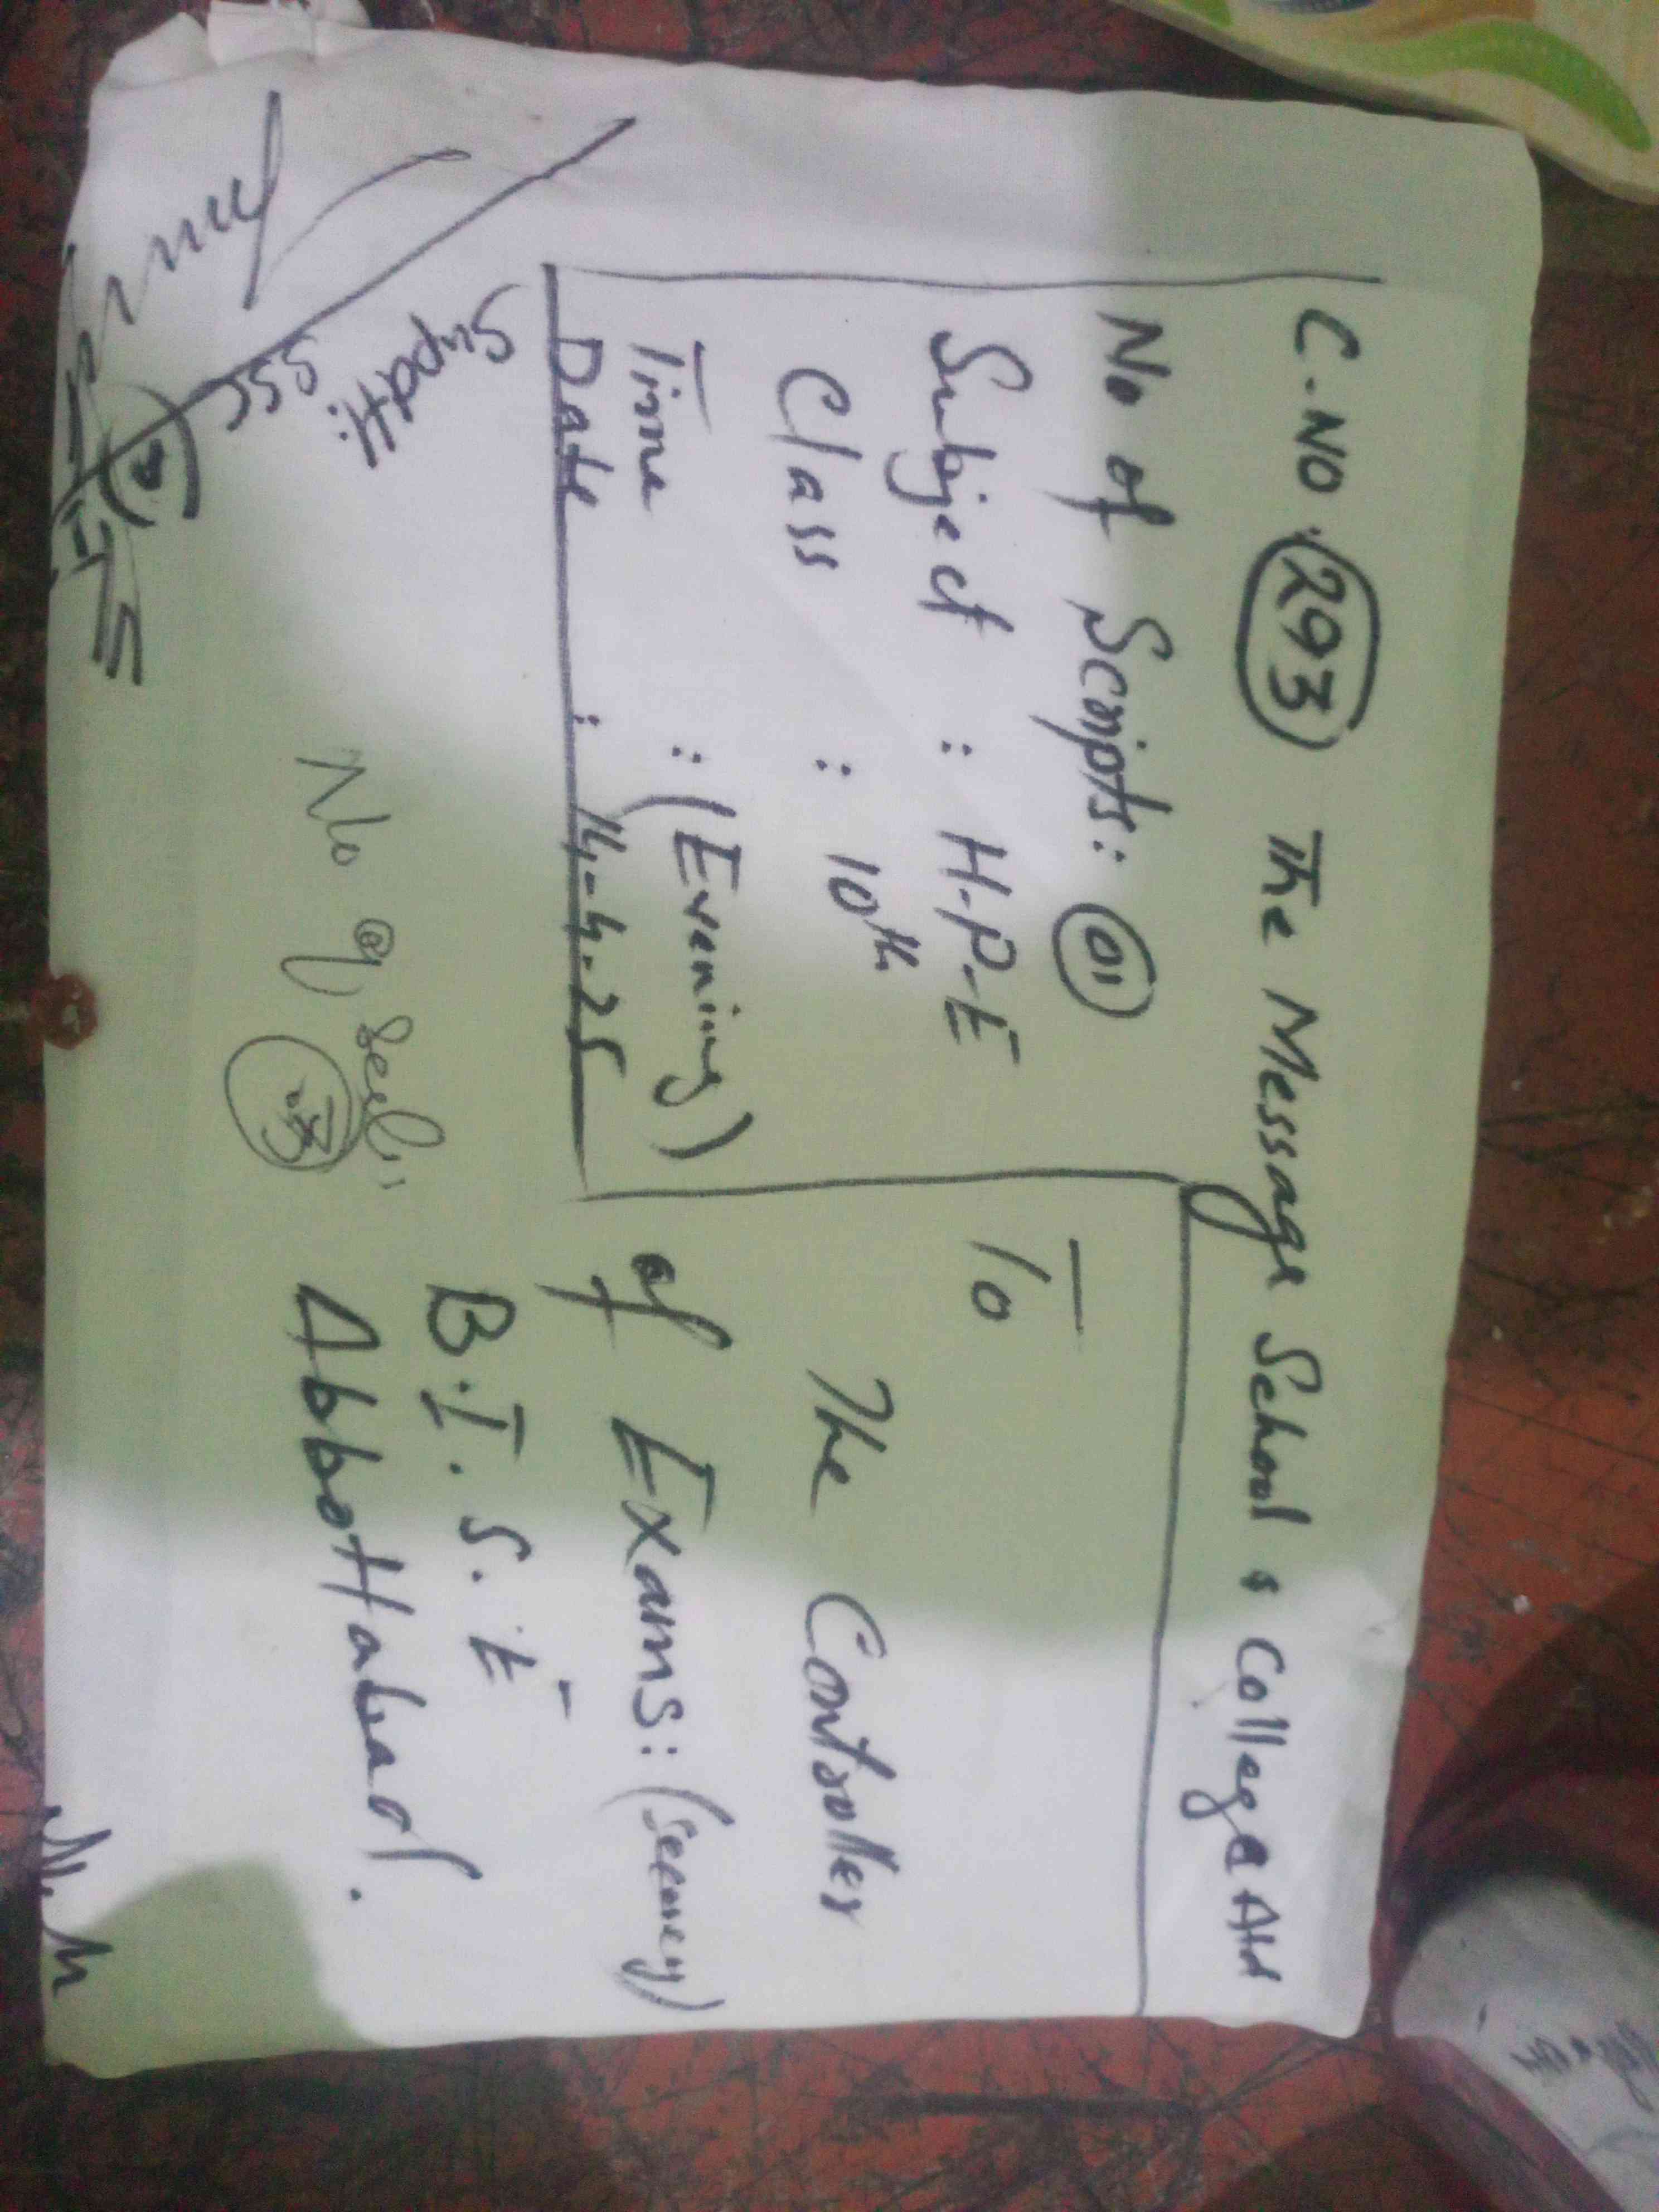 C.NO. 293 The Message School & College Atd
No of Scripts: 01
Subject : H.P.E
Class : 10th
Time : (Evening)
Date : 14-4-25
To
The Controller
of Exams: (Secrecy)
B.I.S.E
Abbottabad.
Supdtt:
SSC
No of Seals
03